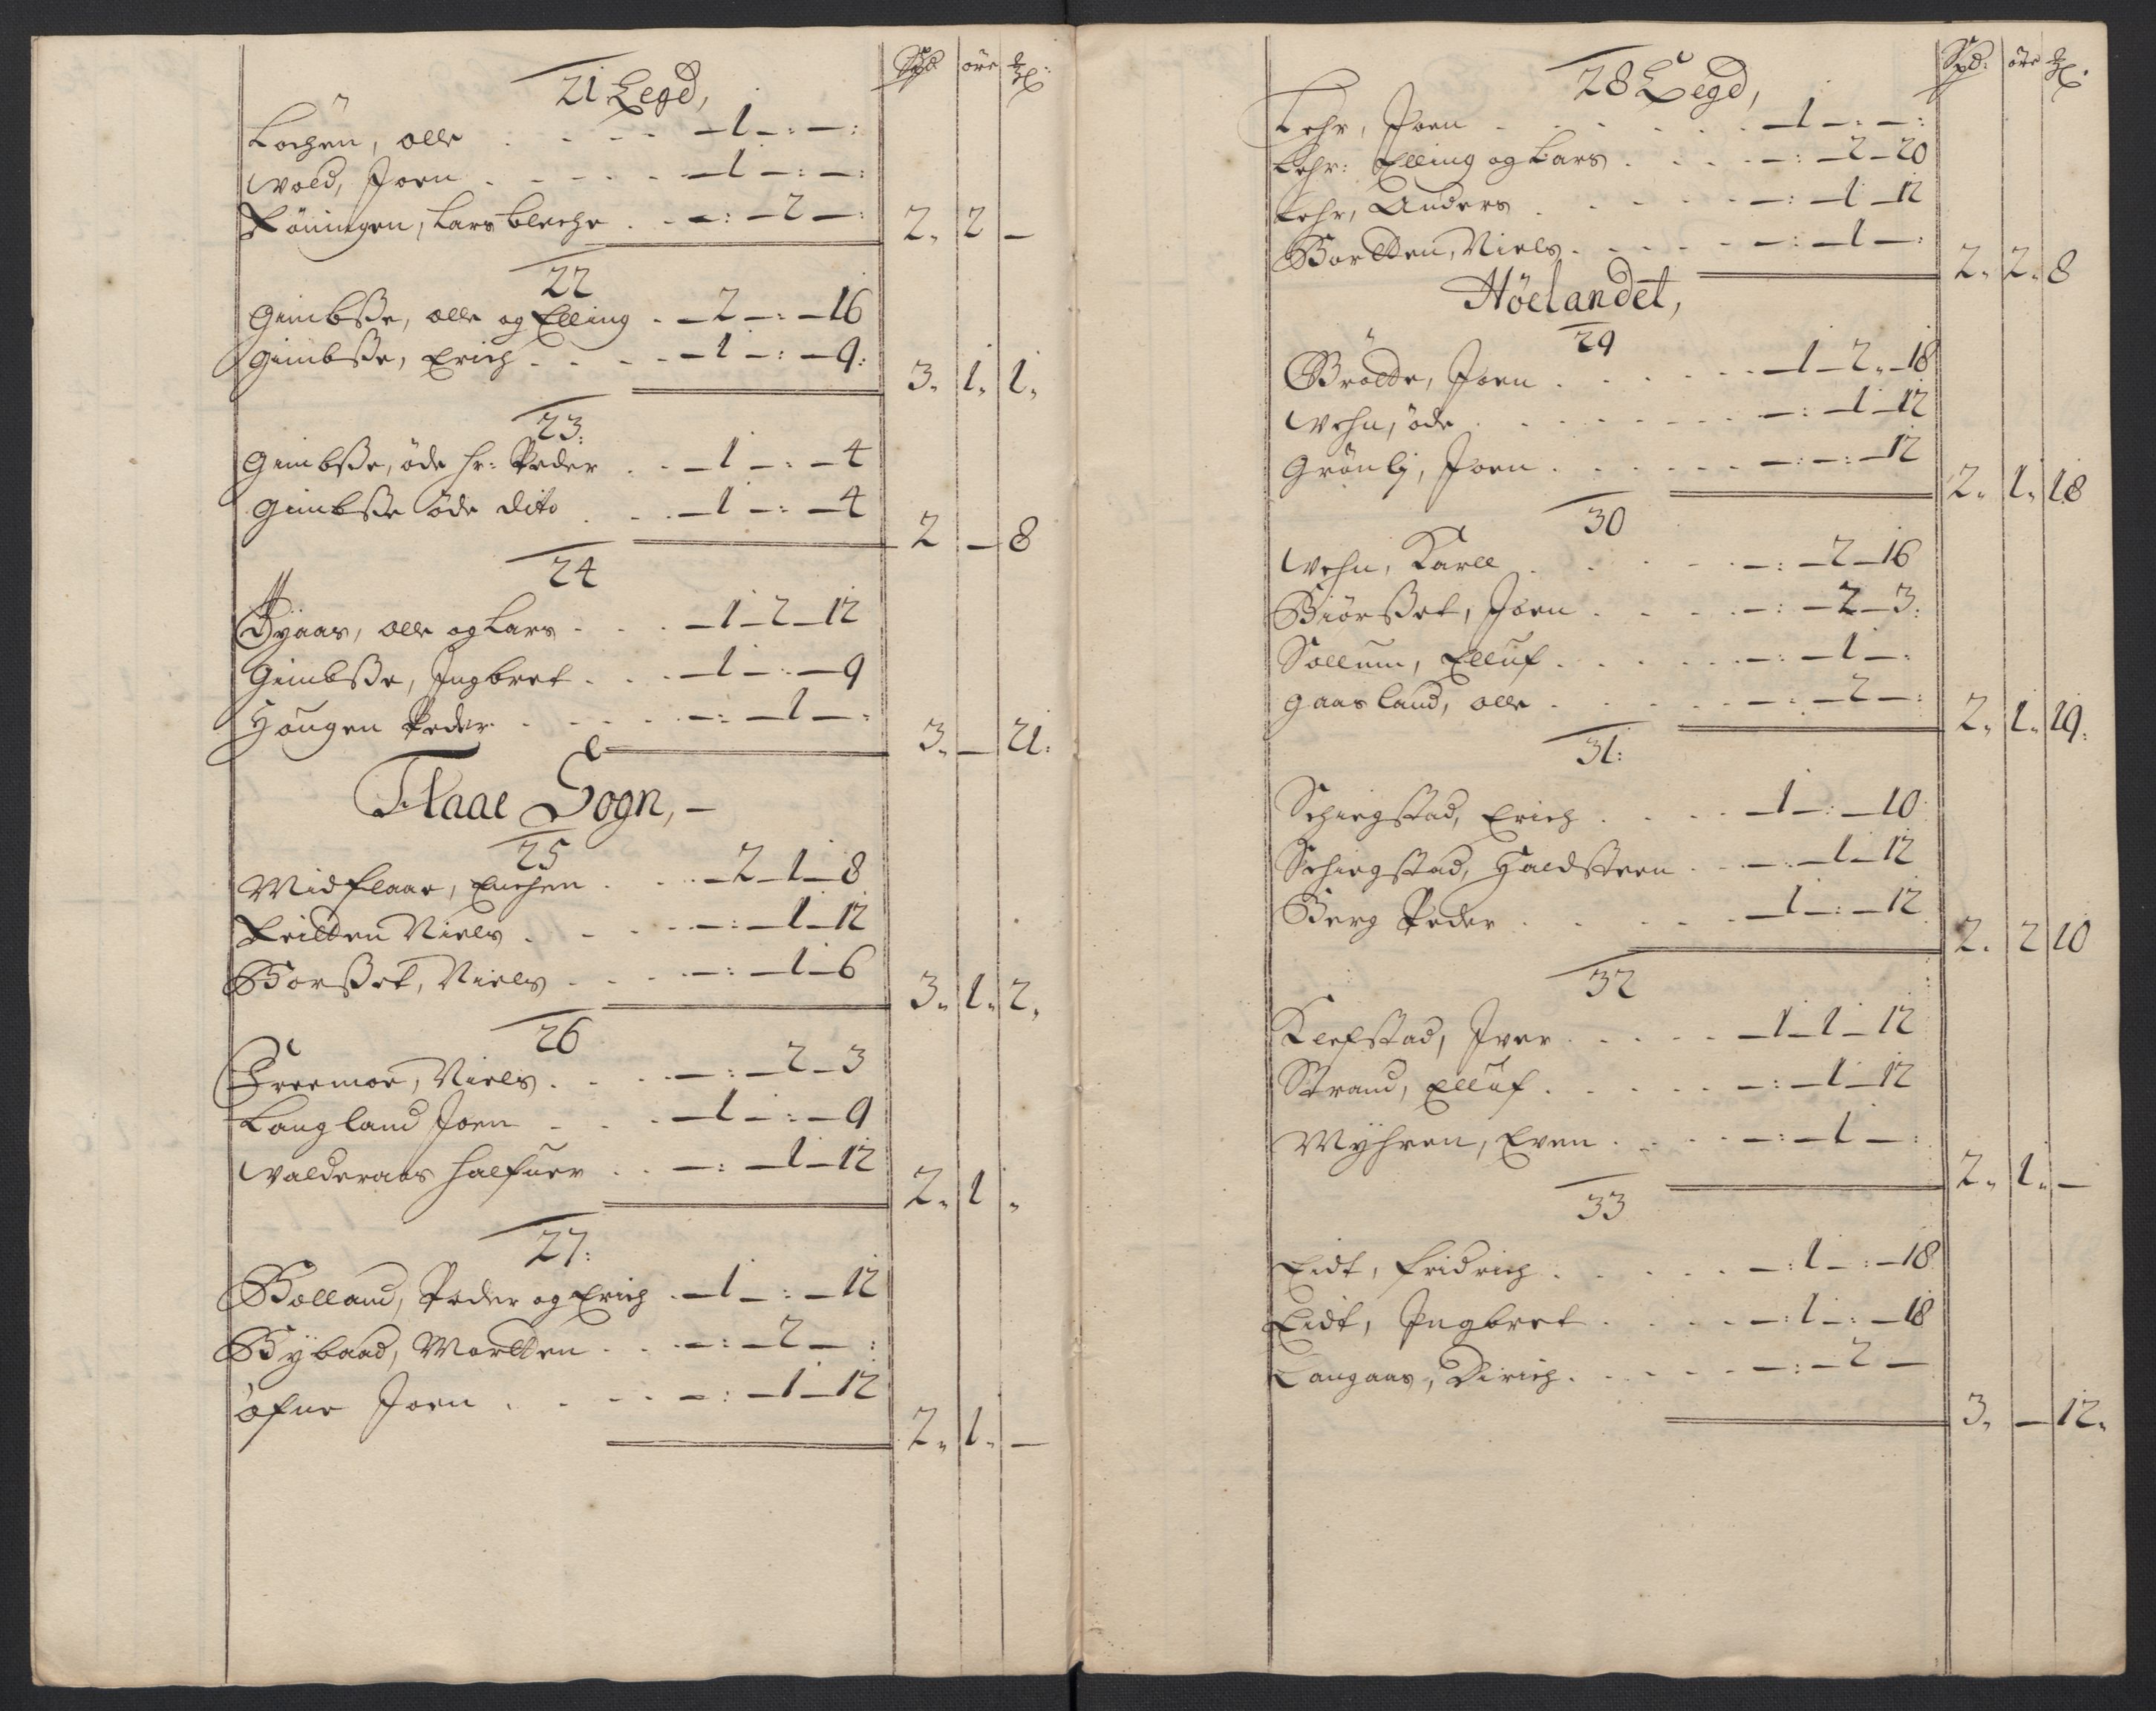 Spd öre
21 Legd,
Lochen, olle . . . . —1—:—:
Wold, Joen . . . . —1—:—:
Röningen, Lars bleche . —:—2—:
2. 2 —
22
Gimbsße, olle og Elling . —2—:—16
Gimbsße, Erich . . . —1—:—9:
3. 1. 1.
23.
Gimbsße, öde hr: Peder . . —1—:—4
Gimbsße öde dito . . —1—:—4
2 — 8
24
Dÿaas, olle og Lars . . —1—2—12
Gimbsße, Ingbret . . —1—:—9
Hougen Peder . . . . —:—1—:
3. — 21.
Flaae Sogn, —
25
Midflaae, Enchen . . —2—1—8
Leildten Niels . . . —:—1—12
Borßet, Niels . . . —:—1—6
3. 1. 2.
26
Freemoe, Niels . . . —:—2—3
Langland Joen . . . —1—:—9
Walderaas halfuer . . —:—1—12
2. 1 .
27.
Bolland, Peder og Erich . —1—:—12
Bÿbaad, Mortten . . —:—2—:
öfue Joen . . . . —:—1—12
2. 1. —
Spd: öre
28 Legd,
Lehr, Joen . . . . . —1—:—:
Lehr: Elling og Lars . . . —:—2—20
Lehr, Anders . . . . —:—1—12
Bortten, Niels . . . . —:—1—:
2. 2. 8
Höelandet,
29
Gröette, Joen . . . . . —1—2.—18
Wehn, öde . . . . . —:—1—12
Grönlj, Joen . . . . . —:—:—12
2. 1. 18
30
Wehn, Karll . . . . —:—2—16
Biörßet, Joen . . . . —:—2—3:
Sollum, Elluf . . . . —:—1—:
Gaasland, olle . . . . —:—2—:
2. 1. 19.
31:
Schiegstad, Erich . . . . —1—:—10:
Schiegstad, Haldsteen . . —:—1—12
Berg Peder . . . . . —1—:—12
2. 2 10
32
Klefstad, Iver . . . . —1—1—12
Strand, Elluf . . . . . —:—1—12
Mÿhren, Even . . . . —:—1—:
2. 1. —
33
Eidt, fridrich . . . . . —:1—:—18
Eidt, Ingbret . . . . —:1—:—18
Langaas, Dirich . . . . —:—2—
3. — 12.